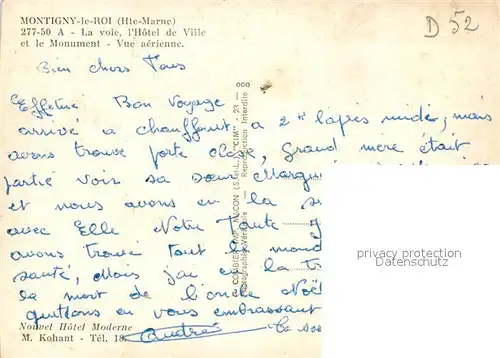 MONTIGNY-le-ROI (Hte-Marne)
277-50 A - La voie, l'Hôtel de Ville
et le Monument - Vue aérienne.
D 52
Bien chers Tous
Effetué Bon Voyage
arrivé a chauffaut a 2 h apies midi, mais
avons trouve porte close, Grand mere était
partie voir sa sœur Margu
et nous avons eu la
avec Elle Notre Tante
avons trouvé tout le mond
santé, Mais j'ai eu la
la mort de l'oncle Noël
quittons en vous embrassant
André
COMBIER IMP. MACON (S.-et-L.) "CIM"
Reproduction Interdite
Nouvel Hôtel Moderne
M. Kohant - Tél. 18
privacy protection
Datenschutz